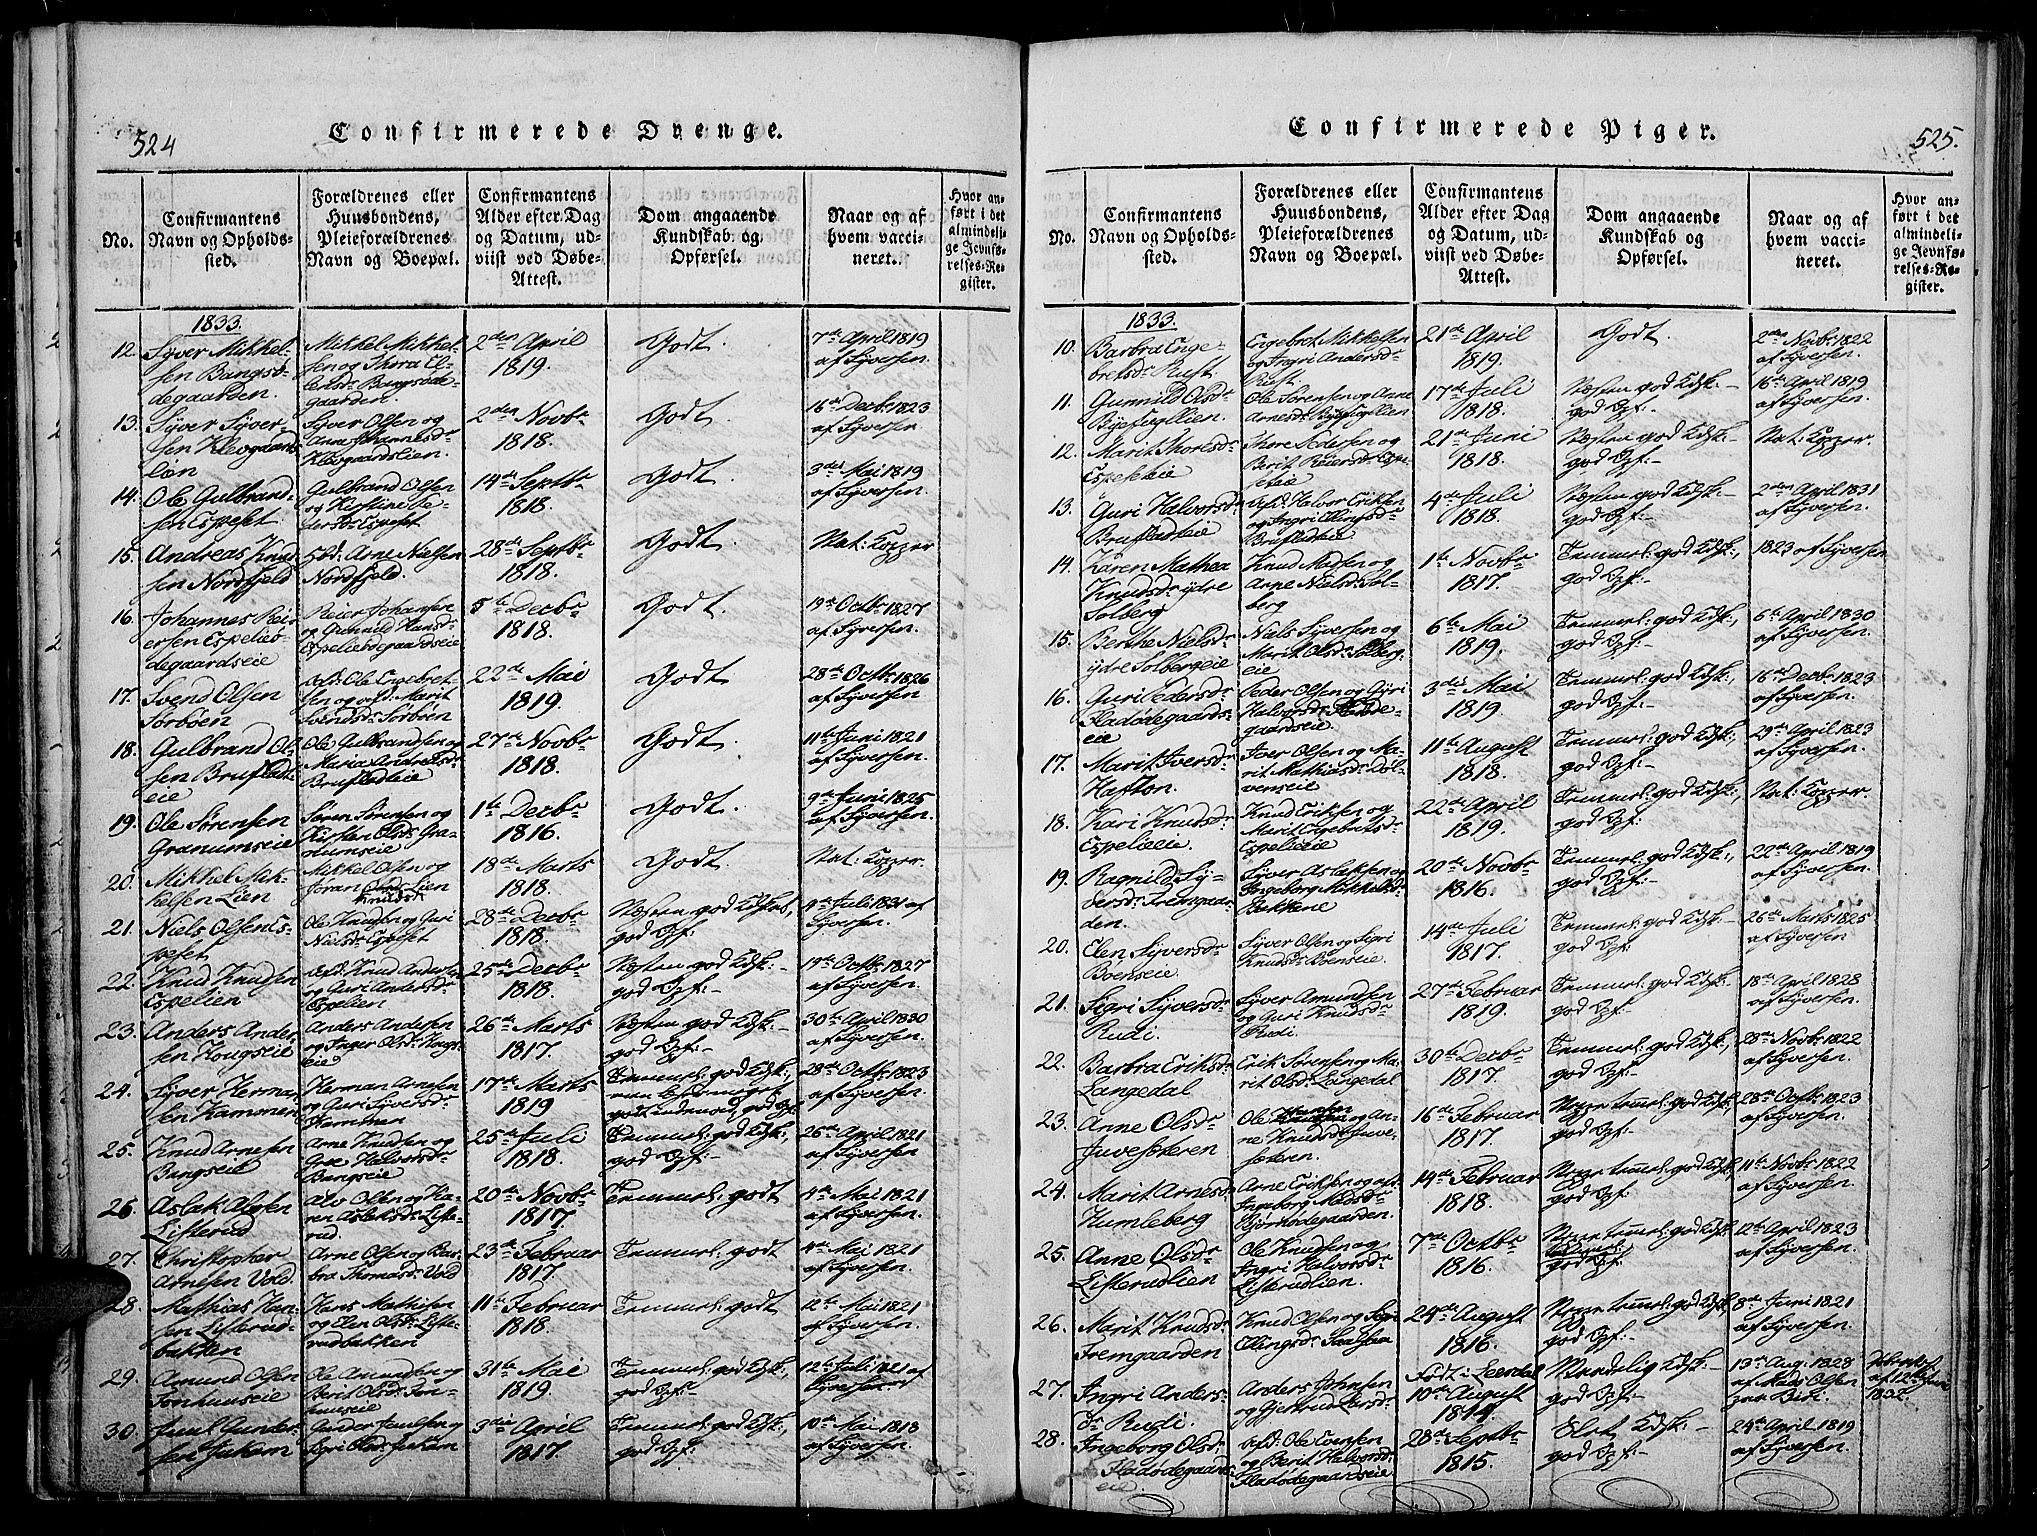 524
Confirmerede Drenge.
No.
Confirmantens
Navn og Opholds-
sted.
Forældrenes eller
Huusbondens,
Pleieforældrenes
Navn og Boepæl.
Confirmantens
Alder efter Dag
og Datum, ud-
viist ved Døbe-
Attest.
Dom angaaende
Kundskab og
Opførsel.
Naar og af
hvem vacci-
neret.
Hvor an-
ført i det
almindeli-
ge Jevnfø-
relses-Re-
gister.
1833.
12. Syver Mikkel-
sen Bangsø-
degaarden.
Mikkel Mikkel-
sen og Thora El-
Bangsøde-
gaarden.
2den April
1819.
Godt.
7de April 1819
af Syversen.
13. Syver Syver-
sen Klevgaards
lien
Syver Olsen og
Anne Johannesdr
Klevgaardslien.
2den Novbr
1818.
Godt
16de Decbr 1823
af Syversen
14. Ole Gulbrand-
sen Espeset.
Gulbrand Olsen
og Kirstine Pe-
dersdr Espeset
14de Septbr
1818.
Godt
3die Mai 1819
af Syversen.
15. Andreas Knud-
sen Nordfjeld
Arne Nielsen
Nordfjeld.
28de Septbr
1818.
Godt
Nat: Kopper
16. Johannes Rei-
ersen Espelieø-
degaardseie
Reier Johansen
og Gunnild Hansdr
Espelieøegaardseie
5te Decbr
1818.
Godt
19de Octbr 1827
af Syversen.
17. Svend Olsen
Sørbøen
Afd: Ole Engebret-
sen og afd: Marit
Svendsdr Sørbøen
22de Mai
1819.
Godt
28de Octbr 1826
af Syversen.
18. Gulbrand Ol-
sen Brufladt-
eie
Ole Gulbrandsen og
Maria Andreasdr
Brufladteie
27de Novbr
1818.
Godt.
11te Juni 1821
af Syversen.
19. Ole Sørensen
Granumseie
Søren Sørensen og
Kirsten Olsdr Gra-
numseie
1te Decbr
1816.
Godt.
9de Juni 1825
af Syversen.
20. Mikkel Mik-
kelsen Lien
Mikkel Olsen og
Jøran Lien
Knudsdr
18de Marts
1818.
Godt.
Nat: Kopper.
21. Niels Olsen Es-
peset
Ole Knudsen og Guri
Nielsdr Espeset
28de Decbr
1818.
Næsten god Kdskab,
god Opf:
9de Juli 1821 af
Syversen.
22. Knud Knudsen
Espelien
Afd: Knud Andersen
og Guri Andersdr
Espelien
25de Decbr
1818.
Næsten god Kdsk:-
god Opf:-
19de Octbr 1827
af Syversen.
23. Anders Ander-
sen Kougseie
Anders Andersen
og Inger Olsdr Kougs-
eie
26de Marts
1817.
Næsten god Kdsk:-
god Opf:-
30te April 1830
af Syversen.
24. Syver Herman-
sen Hammen
Herman Arnesen
og Guri Syversdr
Hammen
17de Marts
1819
Temmel: god Kdsk:,
28de Octbr 1823
af Syversen.
25. Knud Arnesen
Bangseie
Arne Knudsen og
Halvorsdr
Bangseie
25de Juli
1818.
Temmel: god Kdsk:,
god Opf:-
26de April 1821
af Syversen.
26. Aslak Alfsen
Listerud
Alv Olsen og Ka-
ren Aslaksdr Liste-
rud
20de Novbr
1817.
Temmel: godt
4de Mai 1821
af Syversen.
27. Christopher
Arnesen Vold.
Arne Olsen og Bar-
bra Thomasdr Vold
23de Februar
1817.
Temmel: godt
4de Mai 1821
af Syversen.
28. Mathias Han-
sen Listerud-
bakken
Hans Mathisen
og Elen Olsdr Liste-
rudbakken
11te Februar
1818.
Temmel: godt
12te Mai 1821
af Syversen.
29. Amund Olsen
Tonhuuseie
Ole Amundsen og
Berit Olsdr Ton-
huuseie
31te Mai
1819.
Temmel: god Kdsk:,
god Opf:
12te Juli 1821 af
Syversen.
30. Juul Gunder-
sen Jukam
Gunder Juulsen og
Sigri Olsdr Jukam
3die April
1817.
Temmel: god Kdsk:,
god Opf:-
10de Mai 1818
af Syversen.
525.
Confirmerede Piger.
No.
Confirmantens
Navn og Opholds-
sted.
Forældrenes eller
Huusbondens,
Pleieforældrenes
Navn og Boepæl.
Confirmantens
Alder efter Dag
og Datum, ud-
viist ved Døbe-
Attest.
Dom angaaende
Kundskab og
Opførsel.
Naar og af
hvem vacci-
neret.
Hvor an-
ført i det
almindeli-
ge Jevnfø-
relses-Re-
gister.
1833.
10. Barbra Enge-
bretsdr Rust.
Engebret Mikkelsen
og Ingri Andersdr
Rust.
21de April
1819.
Godt.
2den Novbr 1822
af Syversen.
11. Gunnild Olsdr
Byefuglien.
Ole Sørensen og Anne
Arnesdr Byefuglien
17de Juli
1818.
Næsten god Kdsk:-
god Opf:-
16de April 1819
af Syversen.
12. Marit Thoresdr
Espeseteie
Thore Pedersen og
Berit Reiersdr Espe-
seteie
21de Juni
1818.
Næsten god Kdsk:-
god Opf:-
Nat: Kopper.
13. Guri Halvorsdr
Brufladteie
Afd: Halvor Eriksen
og Ingri Ellingsdr
Brufladteie
4de Juli
1818.
Næsten god Kdsk:-
god Opf:-
2den April 1831
af Syversen.
14. Karen Mathea
Knudsdr ydre
Solberg
Knud Madsen og
Anne Nielsdr Sol-
berg
1te Novbr
1817.
Temmel: god Kdsk:,
god Opf:-
1823 af Syversen
15. Berthe Nielsdr
ydre Solbergeie
Niels Syversen og
Marit Olsdr Solberg-
eie
6te Mai
1819.
Temmel: god Kdsk:,
god Opf:-
6te April 1830
af Syversen.
16. Guri Pedersdr
Fladødegaards-
eie
Peder Olsen og Guri
Halvorsdr Fladøde-
gaardseie
3die Mai
1819.
Temmel: god Kdsk:,
god Opf:-
16de Decbr 1823
af Syversen.
17. Marit Iversdr
Hafton.
Iver Olsen og Ma-
rit Mathiasdr Døl-
venseie
11te August
1818.
Temmel: god Kdsk:,
god Opf:-
29de April 1823
af Syversen.
18. Kari Knudsdr
Espelieeie
Knud Eriksen og
Marit Engebretsdr
Espelieeie
22de April
1819.
Temmel: god Kdsk:,
god Opf:-
Nat: Kopper.
19. Ragnild Sy-
versdr Fremgaar-
den.
Syver Aslaksen og
Ingeborg Mikkelsdr
Bakkene
20de Novbr
1816.
Temmel: god Kdsk:,
god Opf:-
22de April 1819
af Syversen.
20. Elen Syversdr
Boenseie.
Syver Olsen og Sigri
Knudsdr Boenseie.
14de Juli
1817.
Temmel: god Kdsk:-
god Opf:
26de Marts 1825
af Syversen
21. Sigri Syversdr
Rudi.
Syver Amundsen
og Guri Knudsdr
Rudi
27de Februar
1819.
Temmel: god Kdsk:,
god Opf:-
18de April 1828
af Syversen.
22. Barbra Eriksdr
Langedal
Erik Sørensen og Ma-
rit Olsdr Langedal
30te Decbr
1817.
Temmel: god Kdsk:,
god Opf:-
28de Novbr 1822
af Syversen.
23. Anne Olsdr
Juvesæteren
Ole Hansen og An-
ne Knudsdr Juve-
sæteren.
16de Februar
1817.
Noget temmel: god Kdsk:,
god Opf:-
28de Octbr 1823
af Syversen.
24. Marit Arnesdr
Humleberg
Arne Eriksen og afd:
Ingeborg
14de Februar
1818.
Noget temmel: god Kdsk:,
god Opf:-
11te Novbr 1822
af Syversen.
25. Anne Olsdr
Listerudlien
Ole Knudsen og
Ingri Halvorsdr
Listerudlien.
7de Octbr
1816.
Noget temmel: god Kdsk:,
god Opf:-
12te April 1823
af Syversen.
26. Marit Knudsdr
Fremgaarden
Knud Olsen og Sigri
Ellingsdr
24de August
1816.
Noget temmel: god Kdsk:,
god Opf:-
8de Juni 1821
af Syversen.
27. Ingri Anders-
dr Rudi.
Anders Johnsen
og Gjertrud Larsdr
Rudi.
Født i Leerdal
10de August
Maadelig Kdsk:-
god Opf:-
13de Aug. 1828
af Olsen
Biri
af 12te Juni
1832
28. Ingeborg Olsdr
Fladødegaards-
eie
Afd: Ole Evensen
og Berit Halvorsdr
Fladødegaardseie
28de Septbr
1815.
Slet Kdsk:-
god Opf:-
24de April 1819
af Syversen.